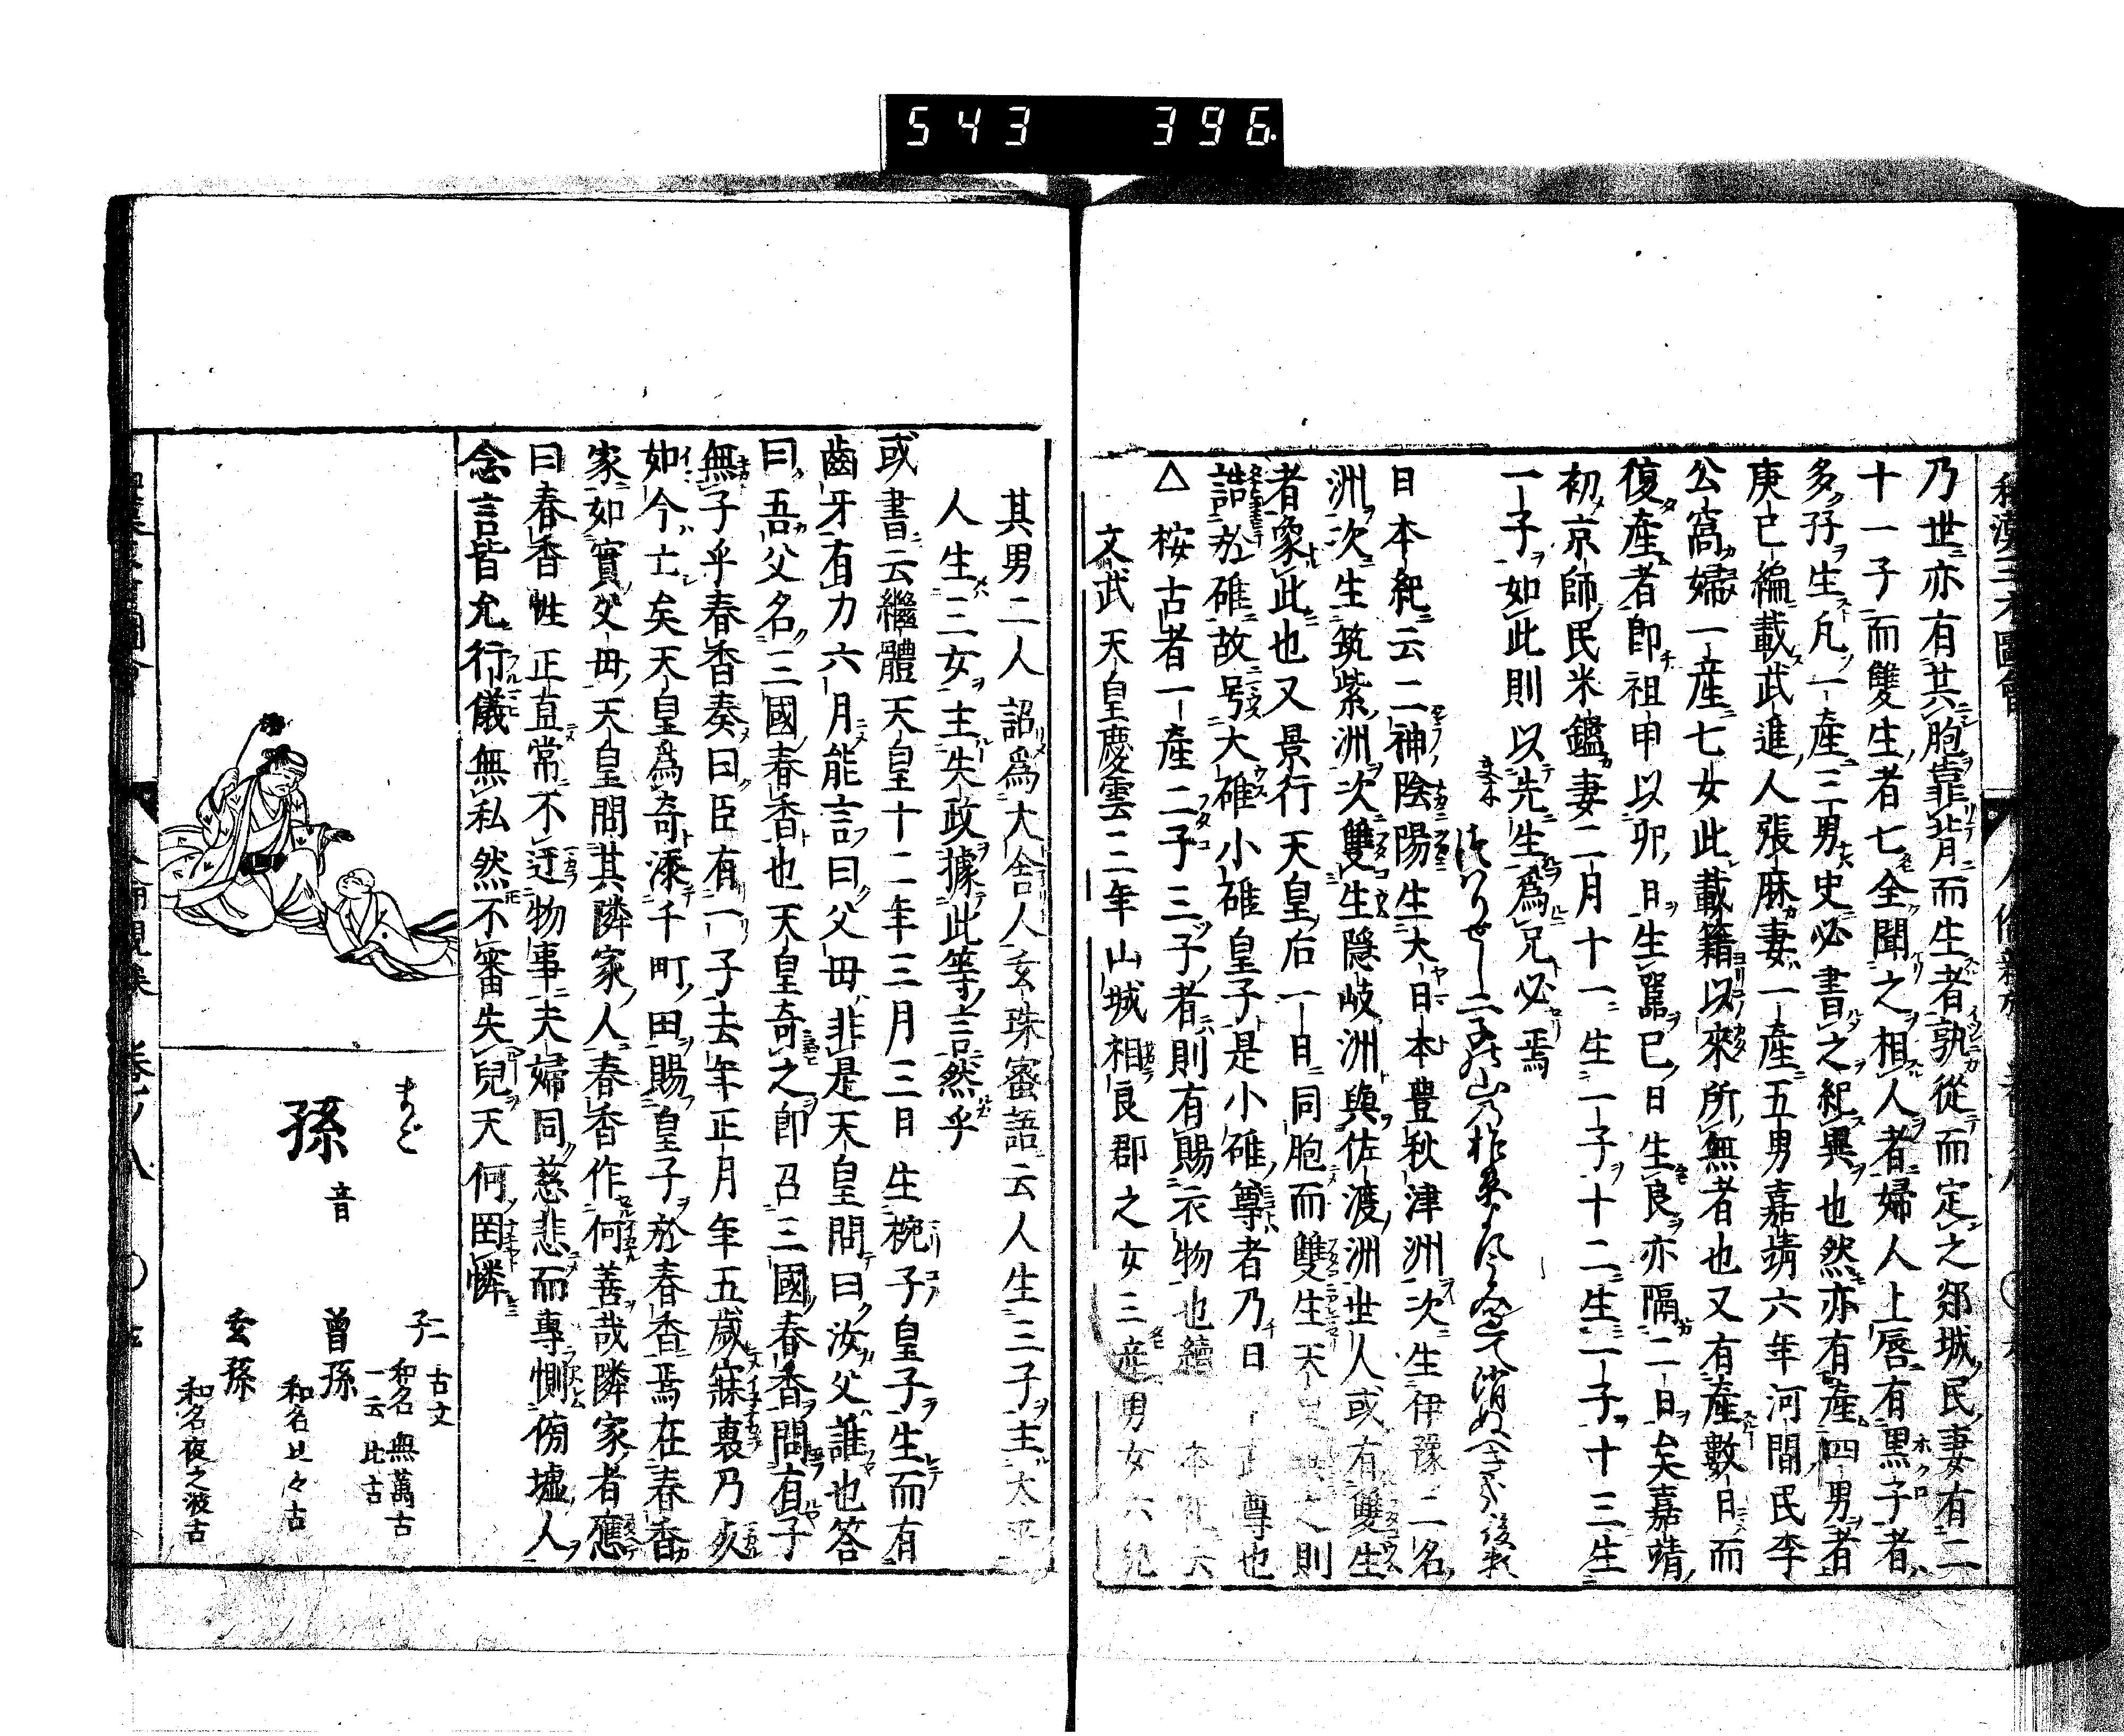 543 396
和漢三才圖會 人倫親族
乃世亦有其胞靠背而生者孰從而定之郯城民妻有二
十一子而雙生者七全聞之相人者婦人上唇有黒子者
多孖生凡一産三男史必書之紀異也然亦有産四男者
庚巳編載武進人張麻妻一産五男嘉靖六年河間民李
公窩婦一産七女此載籍以來所無者也又有産數日而
復産者即祖甲以卯日生嚚巳日生良亦隔二日矣嘉靖
初京師民米鑑妻二月十一生一子十二生二子十三生
一子如此則以先生爲兄必焉
日本紀云二神陰陽生大日本豊秋津洲次生伊豫二名
洲次生筑紫洲次雙生隱岐洲與佐渡洲世人或有雙生
者象此也又景行天皇后一日同胞而雙生天之則
誥於碓故号大碓小碓皇子是小碓尊者乃日尊也
△桉古者一産二子三子者則有賜衣物也續本六
文武天皇慶雲三年山城相良郡之女三産男女六兒
其男二人詔爲大舎人玄珠蜜語云人生三子主太平
人生三女主失政據此等言然乎
或書云繼體天皇十二年三月三日生椀子皇子生而有
齒牙有力六月能言曰父毋非是天皇問曰汝父誰也答
曰吾父名三國春香也天皇奇之即召三國春香問有子
無子乎春香奏曰臣有一子去年正月年五歳寐裏乃
如今亡矣天皇爲奇添千町田賜皇子於春香焉在春香
家如實父毋天皇問其隣家人春香作何善哉隣家者應
曰春香性正直常不迕物事夫婦同慈悲而專惻傍墟人
念言皆允行儀無私然不審失兒天何罔憐
まご
孫
音
子二 古文
和名無萬古
一云比古
曽孫
和名比々古
玄孫
和名夜之波古